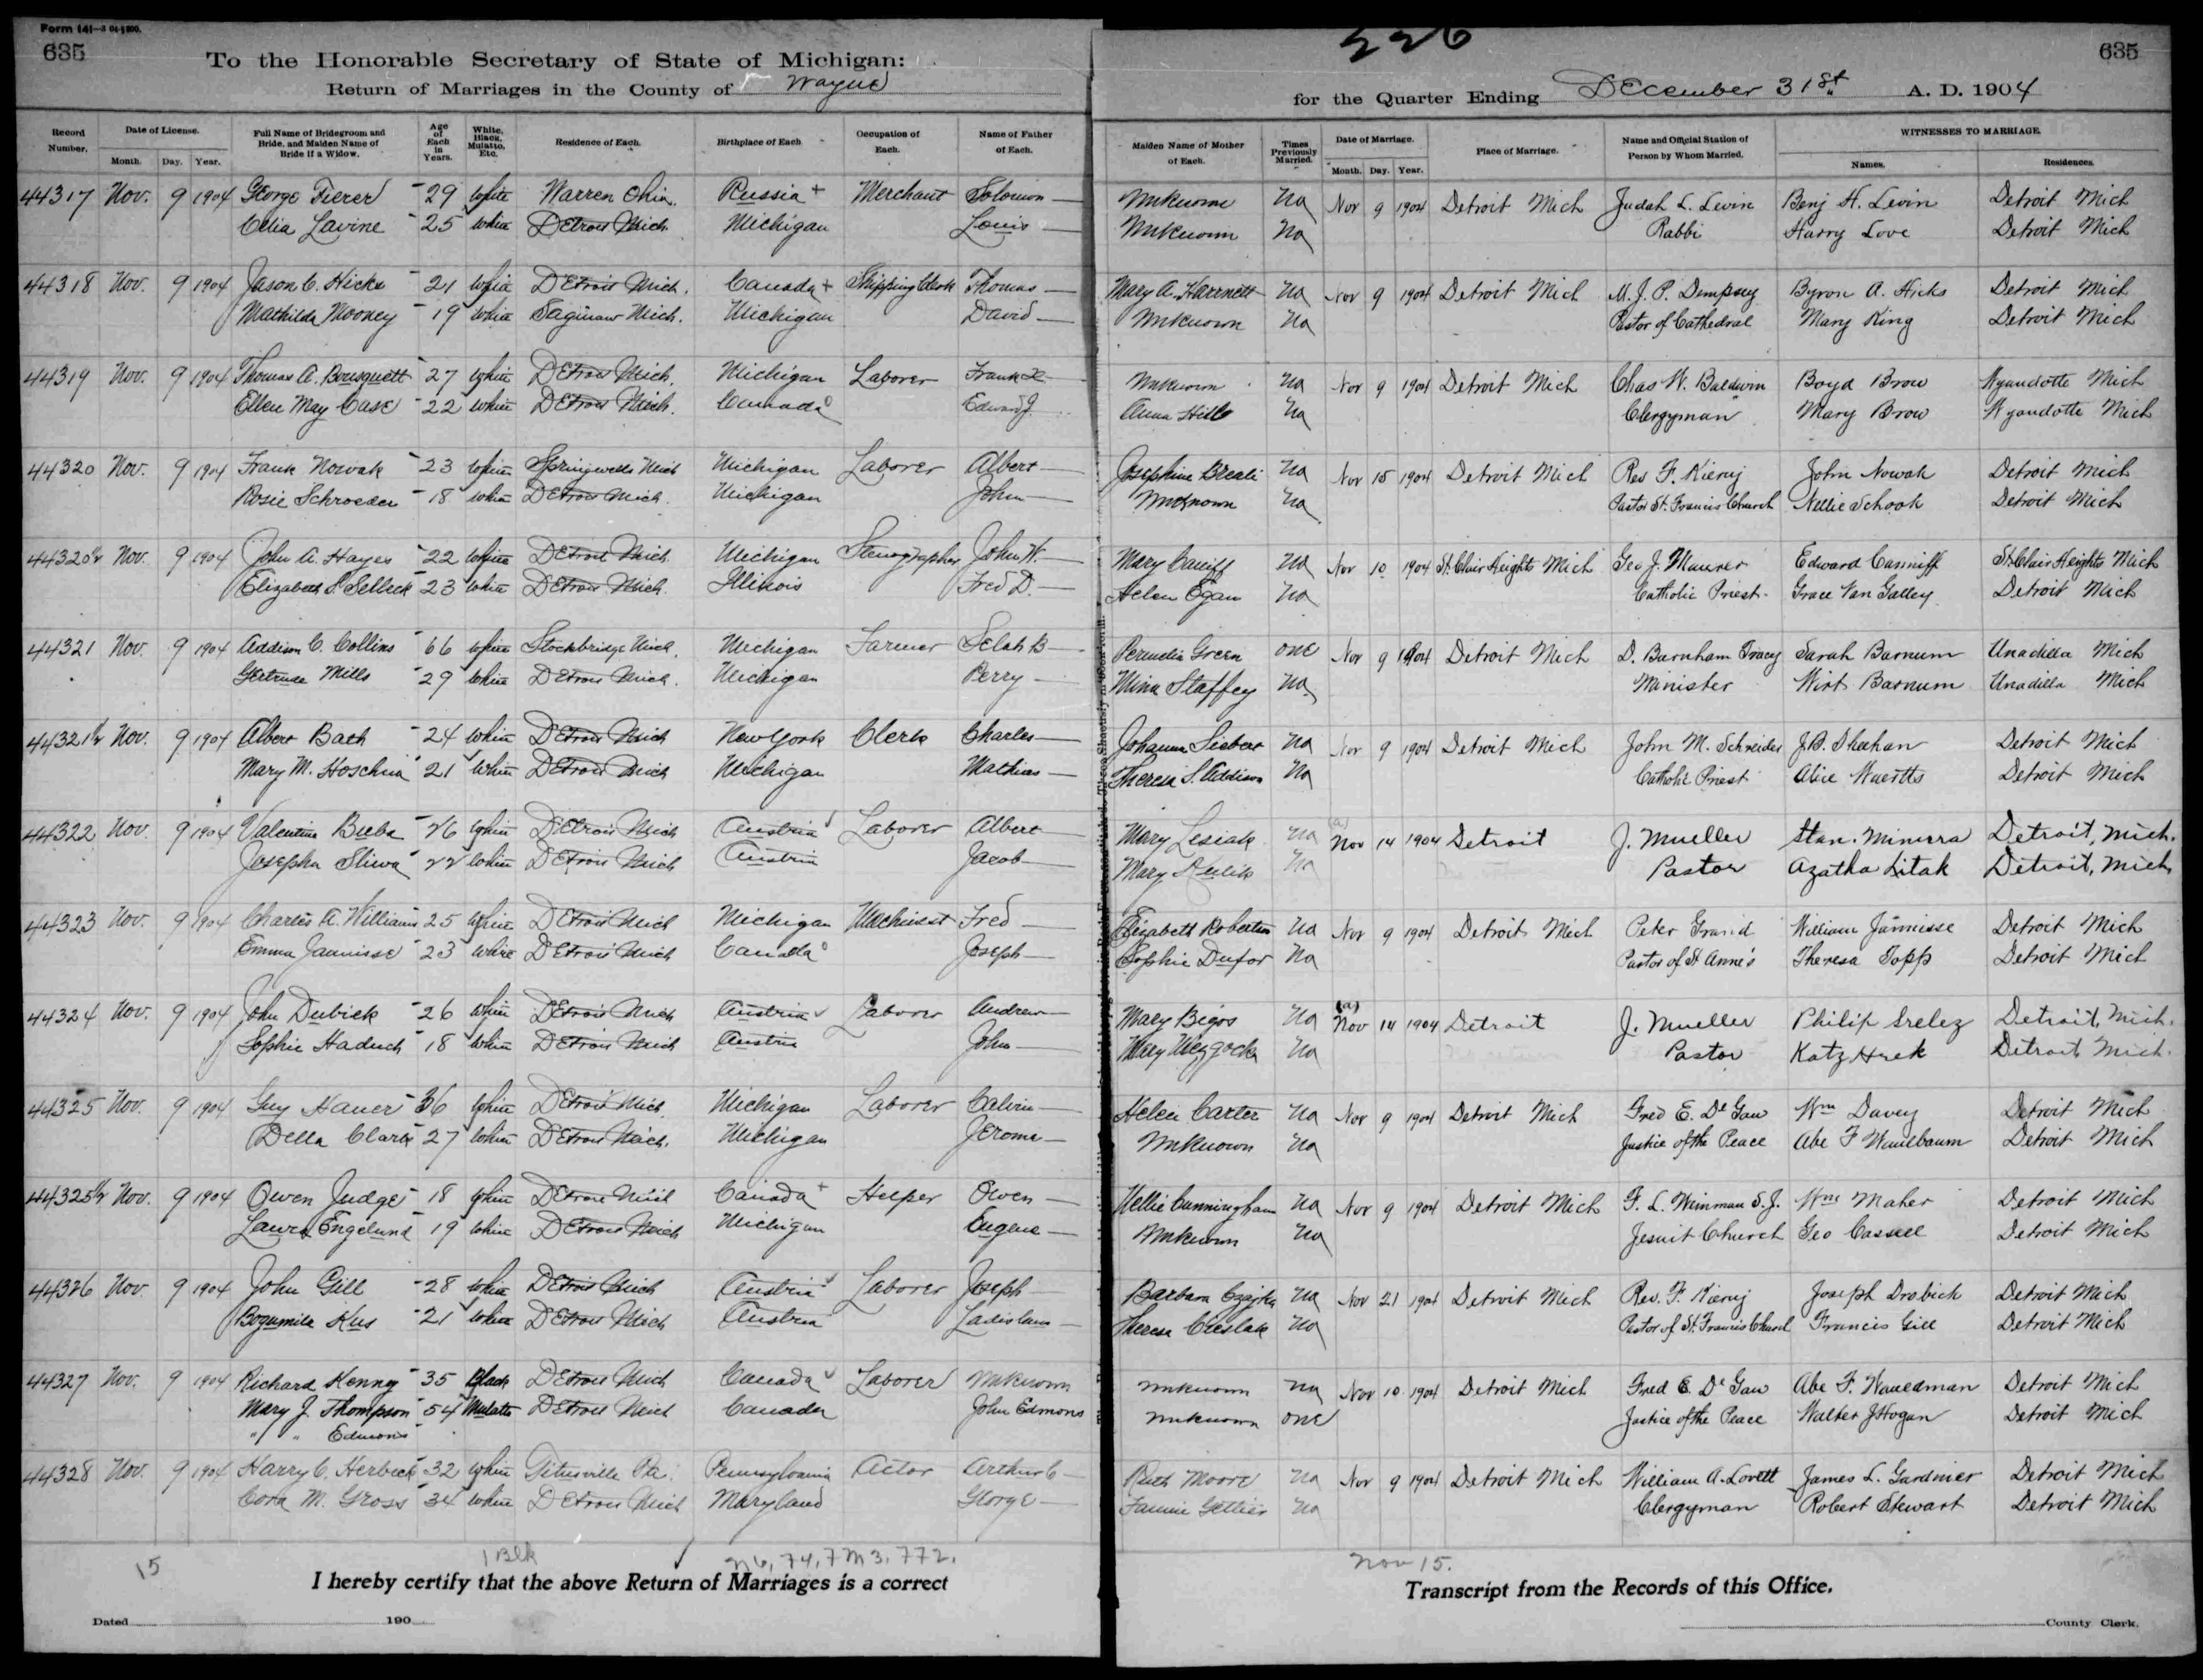 Form 141
635
226
635
To the Honorable Secretary of State of Michigan:
Return of Marriages in the County of Wayne for the Quarter Ending December 31st A. D. 1904
Record Number. Date of License. Month. Day. Year. Full Name of Bridegroom and Bride, and Maiden Name of Bride if a Widow. Age of Each in Years. White, Black, Mulatto, Etc. Residence of Each. Birthplace of Each Occupation of Each. Name of Father of Each. Maiden Name of Mother of Each. Times Previously Married. Date of Marriage. Month. Day. Year. Place of Marriage. Name and Official Station of Person by Whom Married. WITNESSES TO MARRIAGE. Names. Residences.
44317 Nov. 9 1904 George Fierer 29 White Warren Ohio. Russia Merchant Solomon Unknown No Nov 9 1904 Detroit Mich Judah L. Levin Benj H. Levin Detroit Mich
Celia Lavine 25 White Detroit Mich Michigan Louis Unknown No Rabbi Harry Love Detroit Mich
44318 Nov. 9 1904 Jason C. Hicks 21 White Detroit Mich. Canada Shipping Clerk Thomas Mary A. Harrnett No Nov 9 1904 Detroit Mich M. J. P. Dempsey Byron A. Hicks Detroit Mich
Mathilda Mooney 19 White Saginaw Mich. Michigan David Unknown No Pastor of Cathedral Mary King Detroit Mich
44319 Nov. 9 1904 Thomas A. Bousquett 27 White Detroit Mich. Michigan Laborer Frank X. Unknown No Nov 9 1904 Detroit Mich Chas W. Baldwin Boyd Brow Wyandotte Mich
Ellen May Case 22 White Detroit Mich. Canada Edward J. Anna Hill No Clergyman Mary Brow Wyandotte Mich
44320 Nov. 9 1904 Frank Nowak 23 White Springwells Mich Michigan Laborer Albert Josephine No Nov 15 1904 Detroit Mich Rev F. Kieruj John Nowak Detroit Mich
Rosie Schroeder 18 White Detroit Mich. Michigan John Unknown No Pastor St. Francis Church Nellie Schook Detroit Mich
44320½ Nov. 9 1904 John A. Hayes 22 White Detroit Mich. Michigan Stenographer John W. Mary Caniff No Nov 10 1904 St. Clair Heights Mich Geo J. Maurer Edward Canniff St. Clair Heights Mich
Elizabeth S. Selleck 23 White Detroit Mich. Illinois Fred D. Helen Egan No Catholic Priest Grace Van Galley Detroit Mich
44321 Nov. 9 1904 Addison C. Collins 66 White Stockbridge Mich. Michigan Farmer Selah B Permelia Green one Nov 9 1904 Detroit Mich D. Barnham Tracy Sarah Barnum Unadilla Mich
Gertrude Mills 29 White Detroit Mich. Michigan Perry Mina Staffey No Minister Wirt Barnum Unadilla Mich
44321½ Nov. 9 1904 Albert Bath 24 White Detroit Mich New York Clerk Charles Johanna Siebert No Nov 9 1904 Detroit Mich John M. Schreider J. B. Sheehan Detroit Mich
Mary M. Hoschna 21 White Detroit Mich Michigan Mathias Theresa S. Addison No Catholic Priest Alice Wuertts Detroit Mich
44322 Nov. 9 1904 Valentine Bieba 26 White Detroit Mich Austria Laborer Albert Mary Lesiak No (a) Nov 14 1904 Detroit J. Mueller Stan. Minerra Detroit, Mich.
Josepha Sliwa 22 White Detroit Mich Austria Jacob Mary No Pastor Agatha Litak Detroit, Mich.
44323 Nov. 9 1904 Charles A. Williams 25 White Detroit Mich Michigan Machinist Fred Elizabeth Robertson No Nov 9 1904 Detroit Mich Peter Grand William Jannisse Detroit Mich
Emma Jannisse 23 White Detroit Mich Canada Joseph Sophie Dufor No Pastor of St Anne's Theresa Topp Detroit Mich
44324 Nov. 9 1904 John Dubick 26 White Detroit Mich Austria Laborer Andrew Mary Bigos No (a) Nov 14 1904 Detroit J. Mueller Philip Srelez Detroit, Mich.
Sophie Haduch 18 White Detroit Mich Austria John Mary No Pastor Katz Hrek Detroit Mich.
44325 Nov. 9 1904 Guy Hauer 36 White Detroit Mich. Michigan Laborer Calvin Helen Carter No Nov 9 1904 Detroit Mich Fred E. De Gaw Wm Davey Detroit Mich
Della Clark 27 White Detroit Mich. Michigan Jerome Unknown No Justice of the Peace Abe F Wanlbaum Detroit Mich
44325½ Nov. 9 1904 Owen Judge 18 White Detroit Mich Canada Helper Owen Nellie Cunningham No Nov 9 1904 Detroit Mich F. L. Weinman S. J. Wm Maher Detroit Mich
Laura Engelund 19 White Detroit Mich Michigan Eugene Unknown No Jesuit Church Geo Cassell Detroit Mich
44326 Nov. 9 1904 John Gill 28 White Detroit Mich Austria Laborer Joseph Barbara Czajka No Nov 21 1904 Detroit Mich Rev. F. Kieruj Joseph Drobick Detroit Mich
Bogumila Kus 21 White Detroit Mich Austria Ladislaus Theresa Cieslak No Pastor of St. Francis Church Francis Gill Detroit Mich
44327 Nov. 9 1904 Richard Kenney 35 Black Detroit Mich Canada Laborer Unknown Unknown No Nov 10 1904 Detroit Mich Fred E. De Gaw Abe F. Wauldman Detroit Mich
Mary J. Thompson 54 Mulatto Detroit Mich Canada John Edmons Unknown one Justice of the Peace Walter J Hogan Detroit Mich
" " Edmons
44328 Nov. 9 1904 Harry C. Herbeck 32 White Titusville Pa. Pennsylvania Actor Arthur C Ruth Moore No Nov 9 1904 Detroit Mich William A. Lovett James L. Gardnier Detroit Mich
Cora M. Gross 34 White Detroit Mich Maryland George Fannie Gettier No Clergyman Robert Stewart Detroit Mich
15 1 Blk n 6, 74, 7 m 3, 772. Nov 15.
I hereby certify that the above Return of Marriages is a correct Transcript from the Records of this Office.
Dated 190 County Clerk.